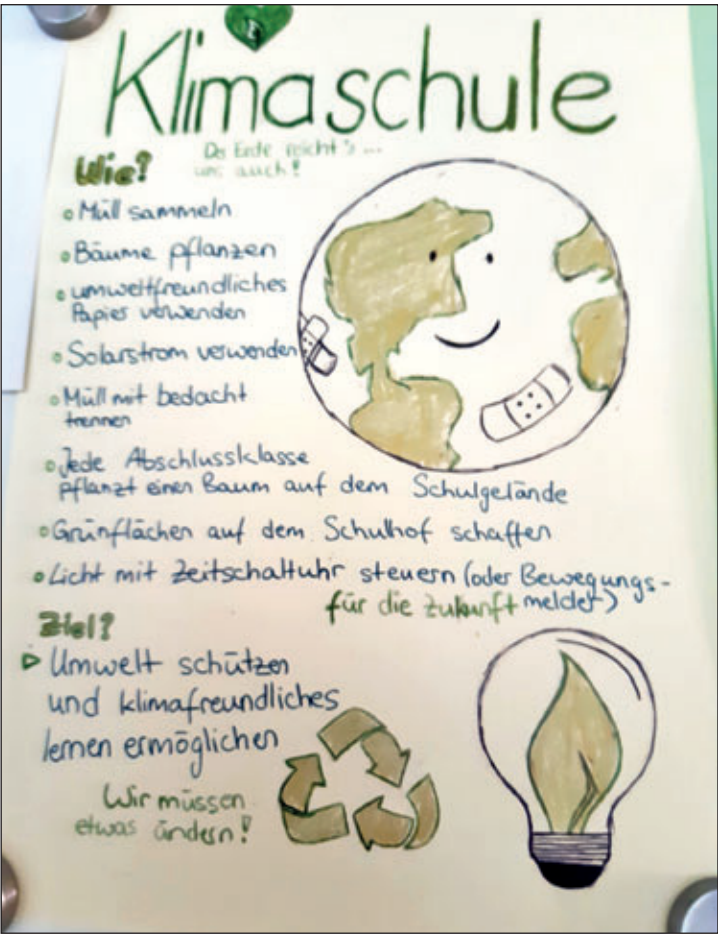 Klimaschule
Der Erde reicht's ...
uns auch!
Wie?
• Müll sammeln
• Bäume pflanzen
• umweltfreundliches
Papier verwenden
• Solarstrom verwenden
• Müll mit bedacht
trennen
• Jede Abschlussklasse
pflanzt einen Baum auf dem Schulgelände
• Grünflächen auf dem Schulhof schaffen
• Licht mit Zeitschaltuhr steuern (oder Bewegungs-
für die Zukunft melder)
Ziel?
▷ Umwelt schützen
und klimafreundliches
lernen ermöglichen
Wir müssen
etwas ändern!